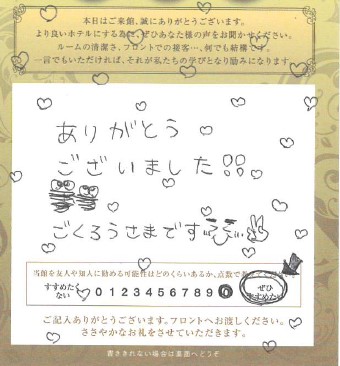 本日はご来館、誠にありがとうございます。
より良いホテルにする為に、ぜひあなた様の声をお聞かせください。
ルームの清潔さ、フロントでの接客…、何でも結構です。
一言でもいただければ、それが私たちの学びとなり励みになります。
ありがとう
ございました!!
ごくろうさまです
当館を友人や知人に勧める可能性はどのくらいあるか、点数で
すすめたくない 0 1 2 3 4 5 6 7 8 9 ぜひすすめたい
ご記入ありがとうございます。フロントへお渡しください。
ささやかなお礼をさせていただきます。
書ききれない場合は裏面へどうぞ